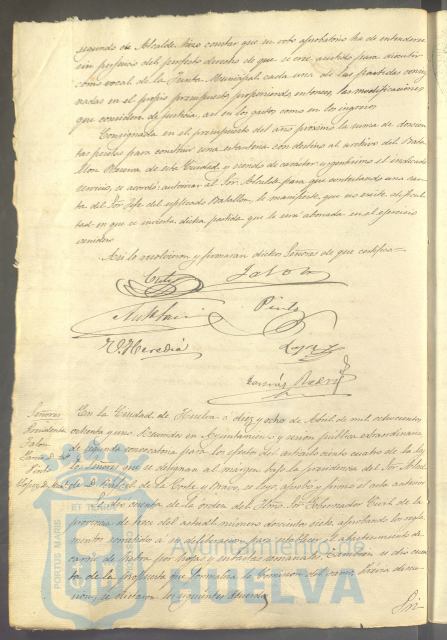 segundo de Alcalde hizo constar que su voto aprobatorio ha de entenderse
sin perjuicio del perfecto derecho de que se cree asistido para discutir
como vocal de la Junta Municipal cada una de las partidas consig-
nadas en el propio presupuesto, proponiendo entonces las modificaciones
que considere de justicia, así en los gastos como en los ingresos
Consignada en el presupuesto del año próximo la suma de doscien-
tas pesetas para construir una estantería con destino al archivo del Bata-
llon Reserva de esta Ciudad, y siendo de caracter el indicado
servicio, se acordó autorizar al Sor. Alcalde para que contestando una car-
ta del Sor. Jefe del esplicado Batallon, le manifieste que no existe dificul-
tad en que se invierta dicha partida que le será abonada en el ejercicio
venidero
Así lo resolvieron y firmaran dichos Señores de que certifico
Pinto
Lopez
Señores
Presidente
Pinto
En la Ciudad de Huelva á diez y ocho de Abril de mil ochocientos
ochenta y uno. Reunidos en Ayuntamiento y sesion publica extraordinaria
de segunda convocatoria para los efectos del artículo ciento cuatro de la ley
los Señores que se designan al márgen bajo la presidencia del Sor. Alcal-
de D. Rafael de la Corte y Bravo, se leyó, aprobó y firmó el acta anterior
Se dió cuenta de la órden del Hono. Sor. Gobernador Civil de la
provincia de trece del actual número doscientos siete, aprobando los regla-
mentos sometidos á su deliberacion para establecer el
carne de hebra por hojas y
ta de la propuesta que formaba la Comision del ramo. Prévia discu-
sion, se dictaron los siguientes acuerdos
Pri-
PORTUS MARIS ET TERRAE
Ayuntamiento de
HUELVA